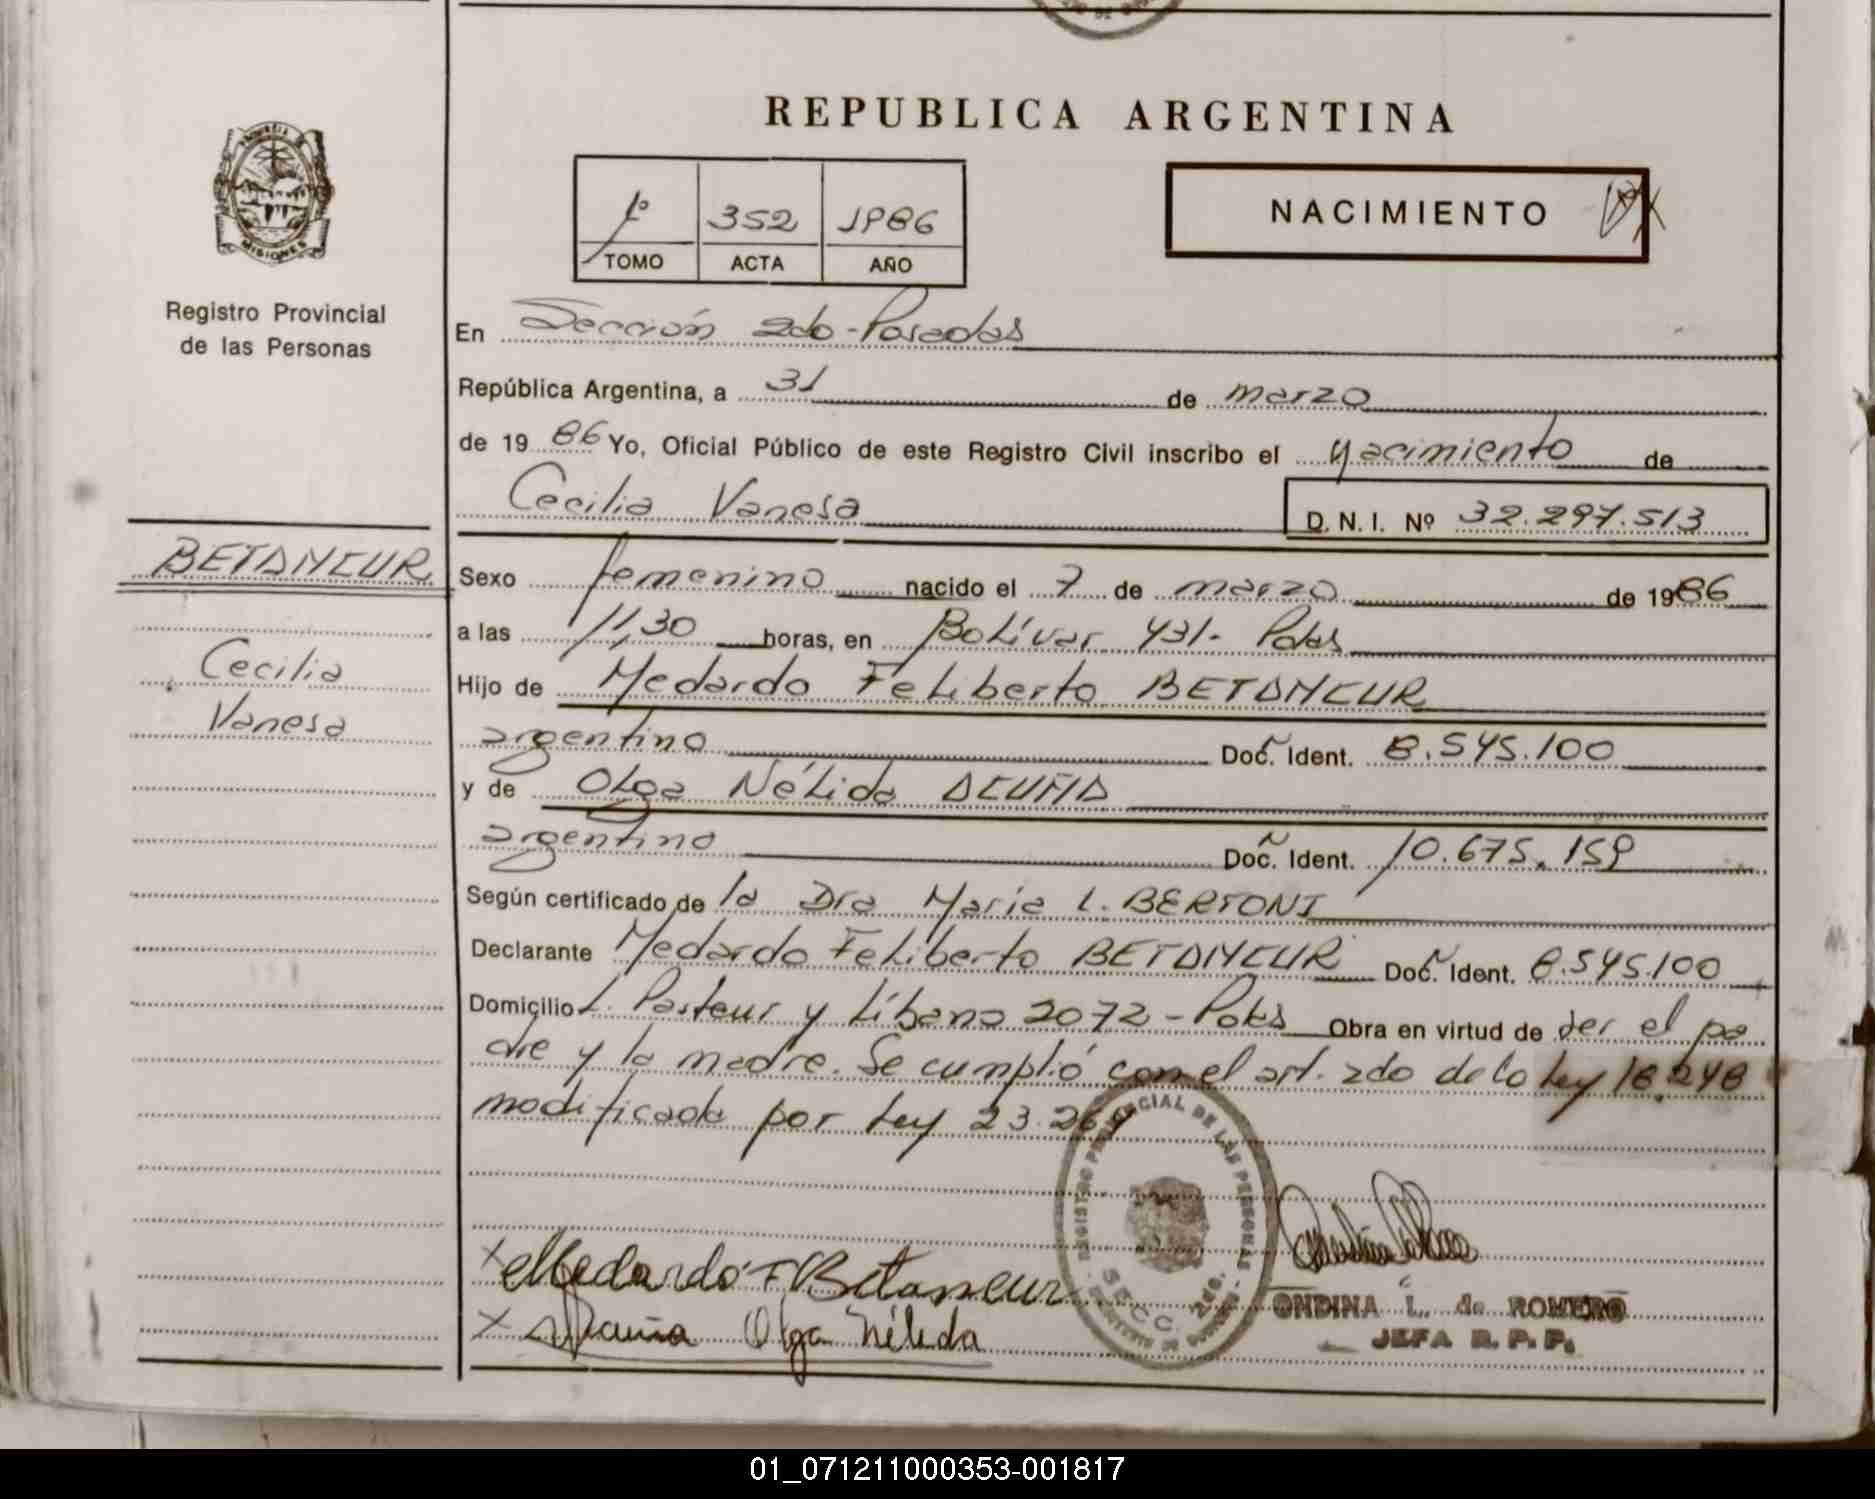 REPUBLICA ARGENTINA
1º 352 1986
TOMO ACTA AÑO
NACIMIENTO
MISIONES
Registro Provincial
de las Personas
En Sección 2da - Posadas
República Argentina, a 31 de marzo
de 1986 Yo, Oficial Público de este Registro Civil inscribo el nacimiento de
Cecilia Vanesa
D. N. I. Nº 32.297.513
BETANCUR
Cecilia
Vanesa
Sexo femenino nacido el 7 de marzo de 1986
a las 11,30 horas, en Bolívar 431- Pdas
Hijo de Medardo Feliberto BETANCUR
argentino Doc. Ident. 8.545.100
y de Olga Nélida ACUÑA
argentina Doc. Ident. 10.675.159
Según certificado de la Dra María L. BERTONI
Declarante Medardo Feliberto BETANCUR Doc. Ident. 8.545.100
Domicilio L. Pasteur y Líbano 2072 - Pdas Obra en virtud de ser el pa
dre y la madre. Se cumplió con el art. 2do de la ley 18.248
modificada por ley 23.264
REGISTRO PROVINCIAL DE LAS PERSONAS
SECC. 2da.
Medardo F Betancur
Acuña Olga Nélida
ONDINA L. de ROMERO
JEFA R. P. P.
01_071211000353-001817